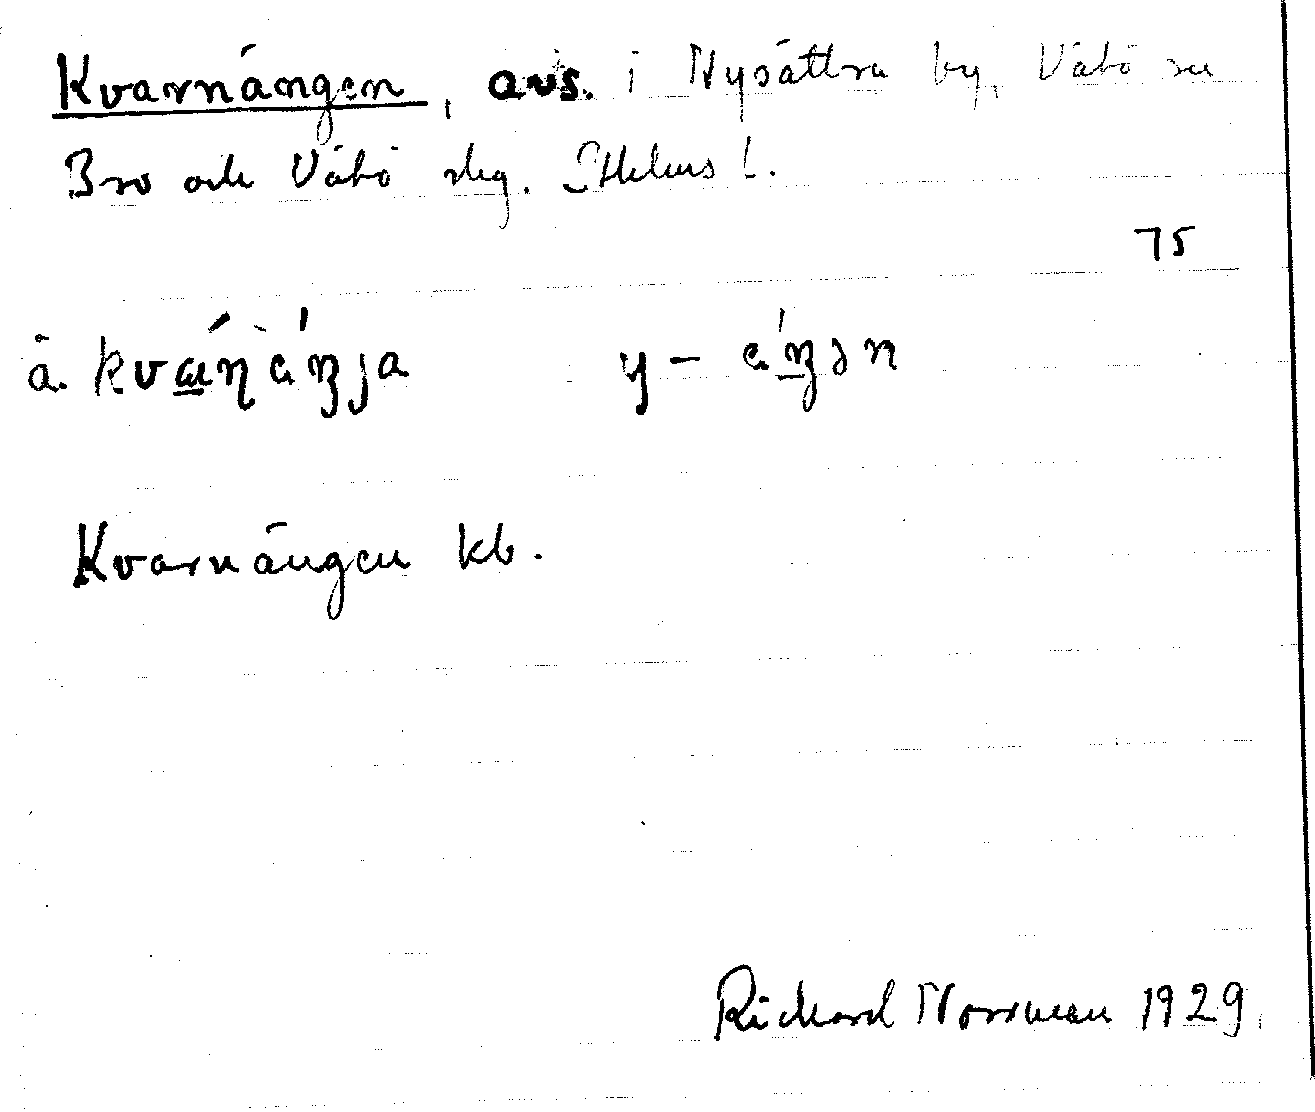 Kvarnängen, avs. i Nysättra by, Vätö sn
Bro och Vätö skg. Sthlms l.
75
å. kvɑṇäŋja y - äŋən
Kvarnängen kb.
Richard Norrman 1929